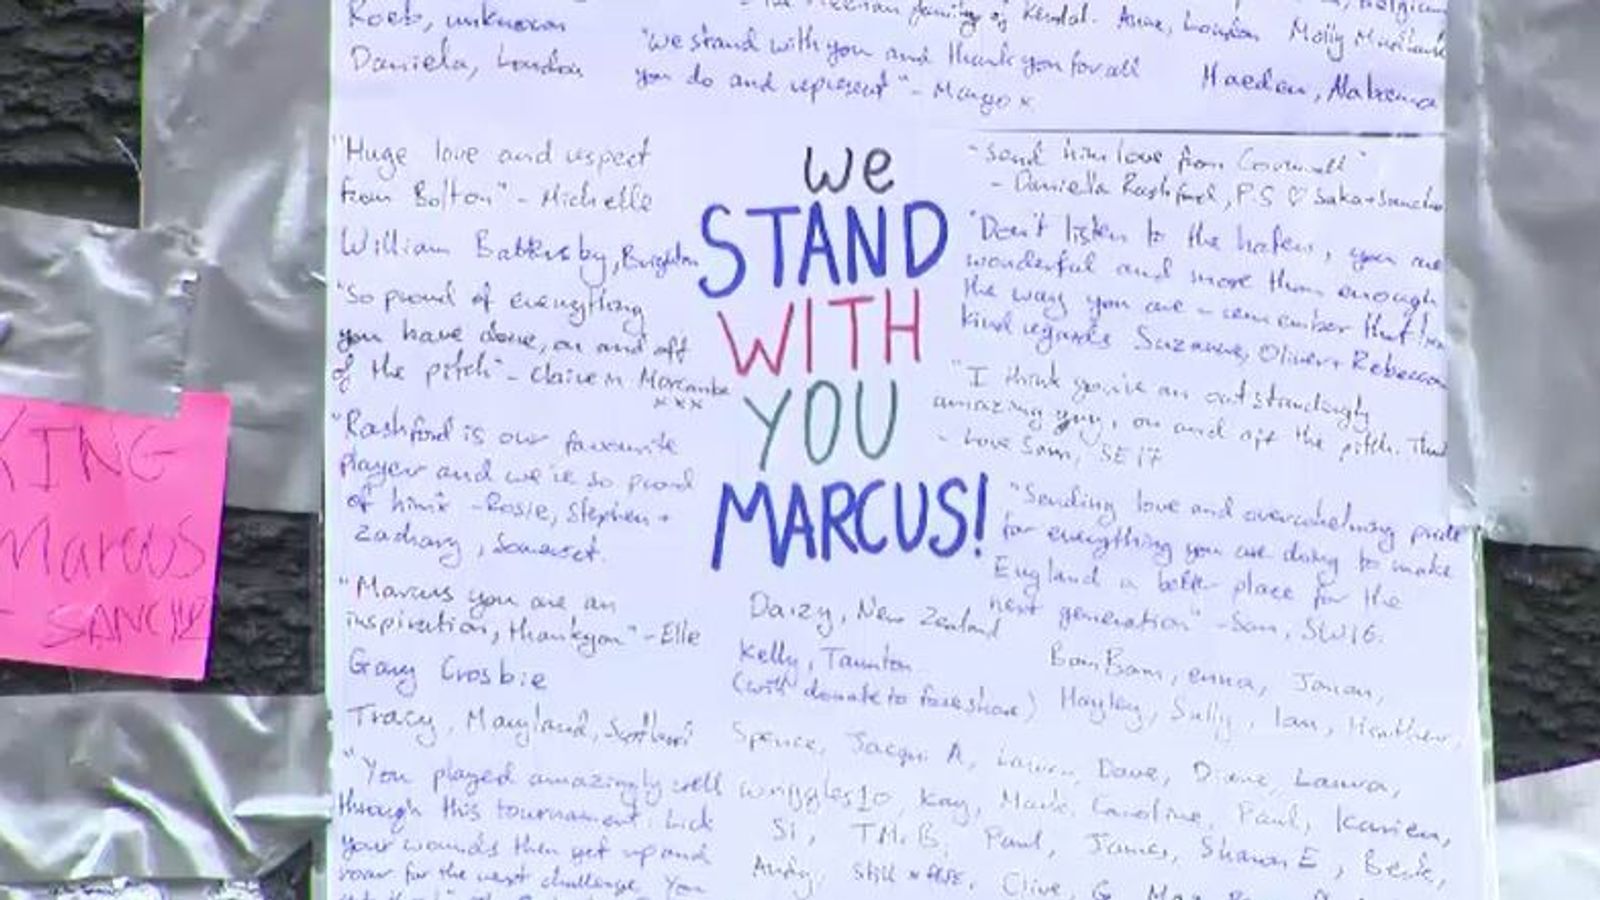 Roeb, unknown
Daniela, London
family of Kendal. Anne, London
"we stand with you and thank you for all
you do and represent" - Margo x
Haeden, Alabama
"Huge love and respect
from Bolton" - Michelle
William Battersby, Brighton
"So proud of everything
you have done, on and off
of the pitch" - Claire M Morcambe
xxx
"Rashford is our favourite
player and we're so proud
of him" - Rosie, Stephen +
Zachary, Somerset.
"Marcus you are an
inspiration, thankyou" - Elle
Gary Crosbie
Tracy, Maryland,
"You played amazingly well
through this tournament. Lick
your wounds then get up and
roar for the next challenge. You
We
STAND
WITH
YOU
MARCUS!
Daizy, New Zealand
Kelly, Taunton
(will donate to fareshare)
"Send him love from Cornwall"
- Daniella Rashford, P.S ♡ Saka + Sancho
"Don't listen to the haters, you are
wonderful and more than enough
the way you are - remember that
kind regards Suzanne, Oliver + Rebecca
"I think you're an outstandingly
amazing guy, on and off the pitch.
- Love Sam, SE17
"Sending love and overwhelming pride
for everything you are doing to make
England a better place for the
next generation" - Sam, SW16.
BamBam, enna,
Hayley, Sully, Ian, Heather,
Spence, Jacqui A, Dave, Diane, Laura,
wriggles10 Kay, Mark, Caroline, Paul, Karien,
Si, TM.B, Paul, James, Sharon E, Beck,
Andy, Clive, G
KING
Marcus
SANCHO